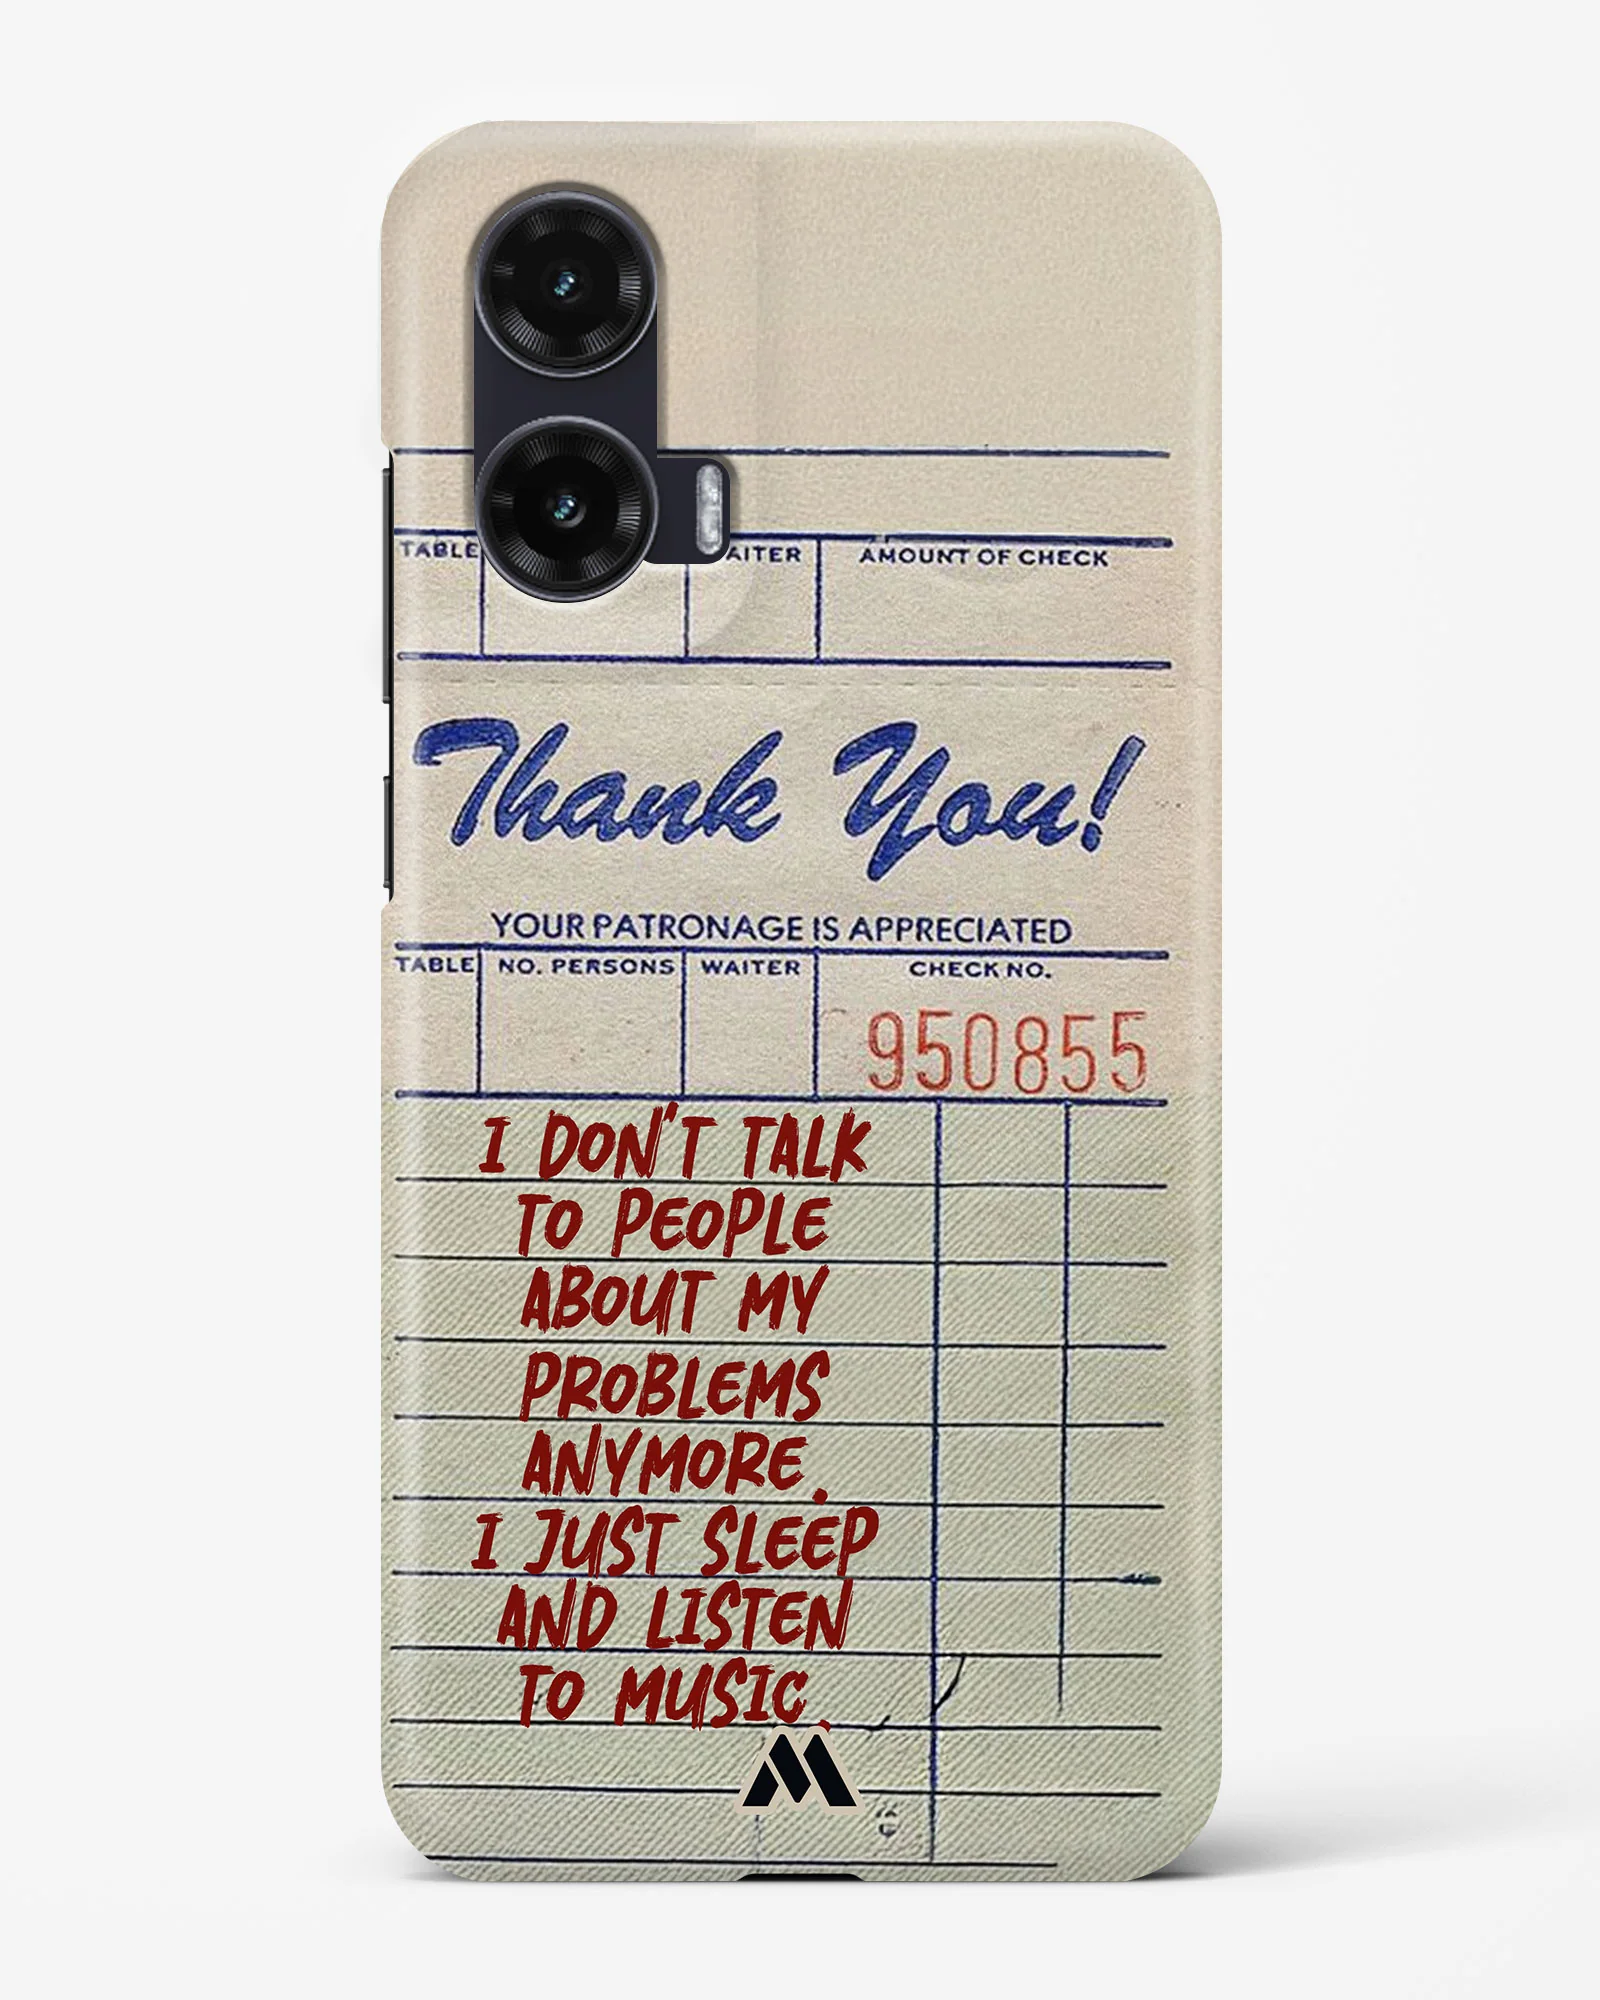 TABLE AITER AMOUNT OF CHECK
Thank You!
YOUR PATRONAGE IS APPRECIATED
TABLE NO. PERSONS WAITER CHECK NO.
950855
I DON'T TALK
TO PEOPLE
ABOUT MY
PROBLEMS
ANYMORE.
I JUST SLEEP
AND LISTEN
TO MUSIC.